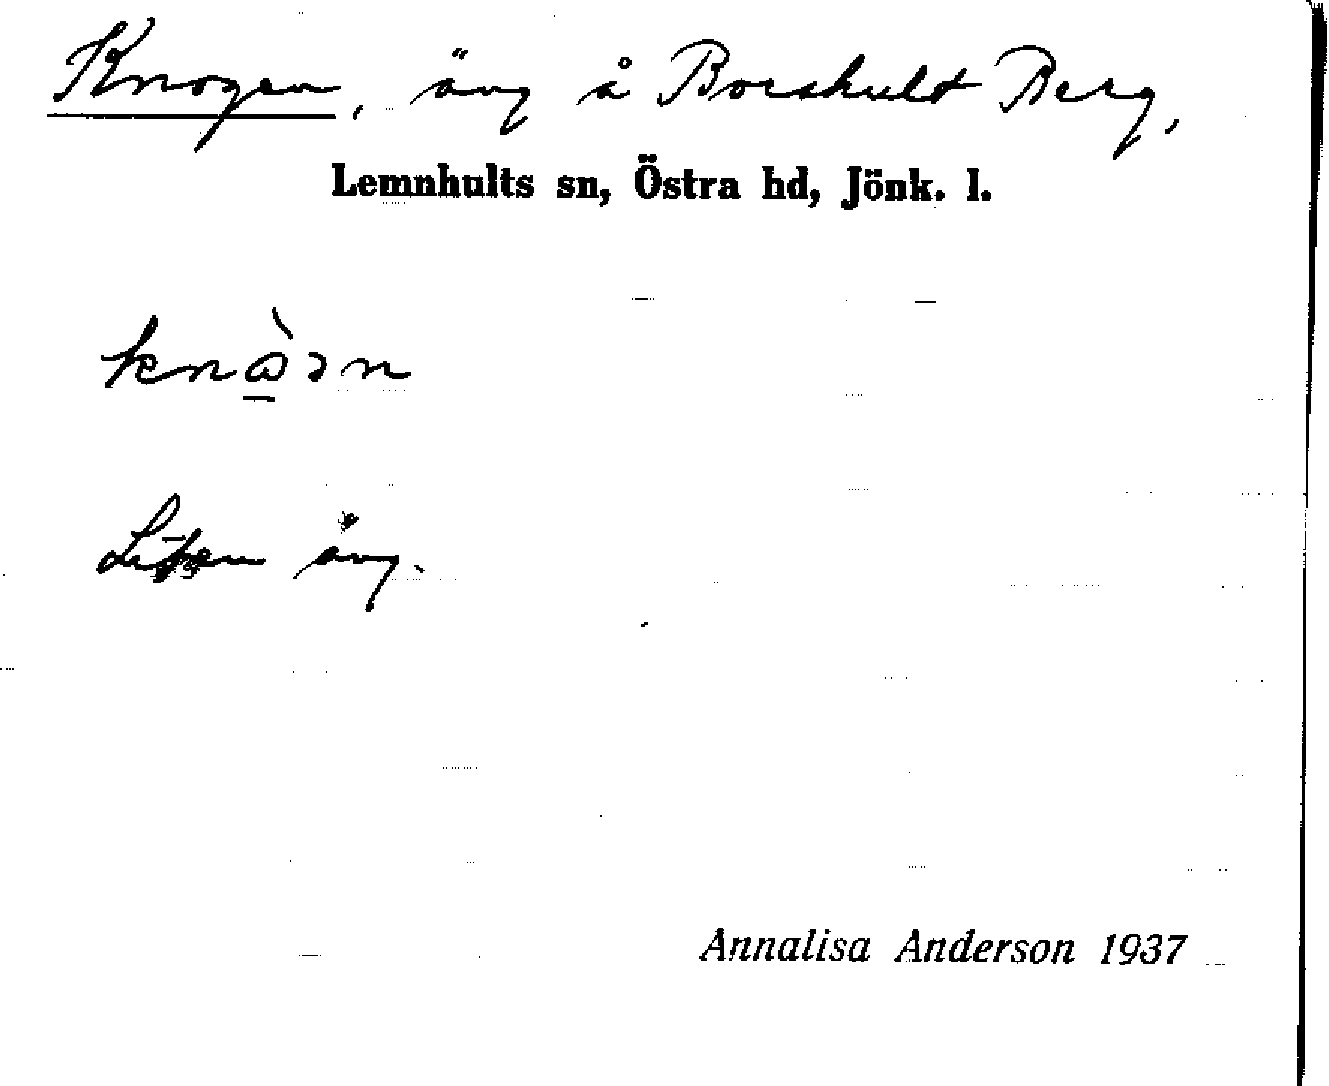 Knogen, äng å Borshult Berg,
Lemnhults sn, Östra hd, Jönk. l.
Liten äng.
Annalisa Anderson 1937